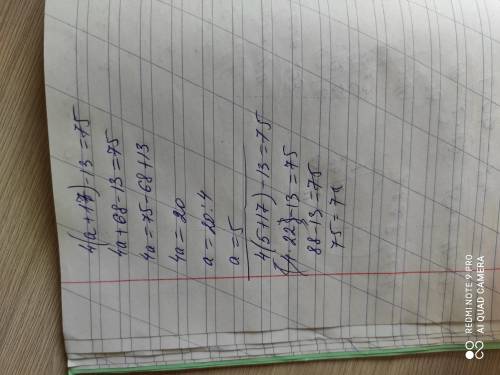 4(a+17)-13=75
4a+68-13=75
4a=75-68+13
4a=20
a=20:4
a=5
4(5+17)-13=75
(4·22)-13=75
88-13=75
75=75
REDMI NOTE 9 PRO
AI QUAD CAMERA